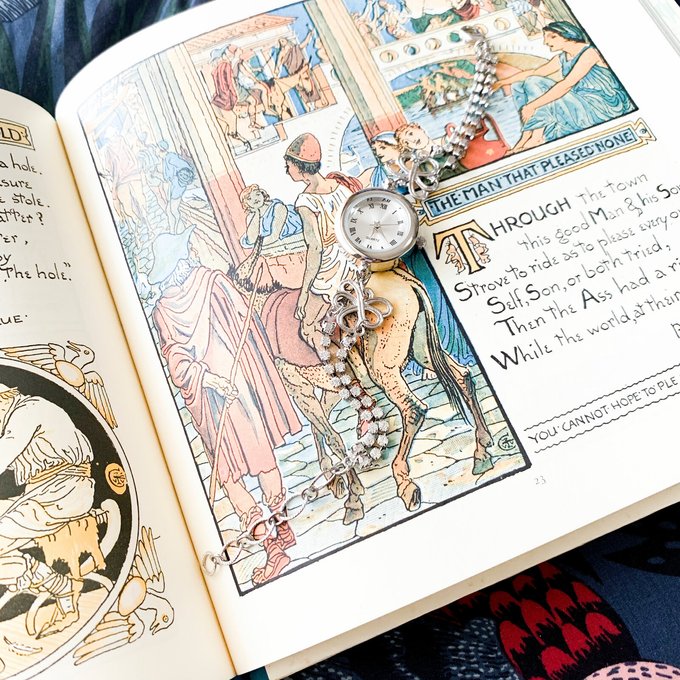 LD
a hole.
sure
stole.
er,
The hole."
UE
THE MAN THAT PLEASED NONE
THROUGH the town
this good Man & his Son
Strove to ride as to please everyo
Self, Son, or both tried,
Then the Ass had a ri
While the world, at their
YOU CANNOT HOPE TO PLE
23